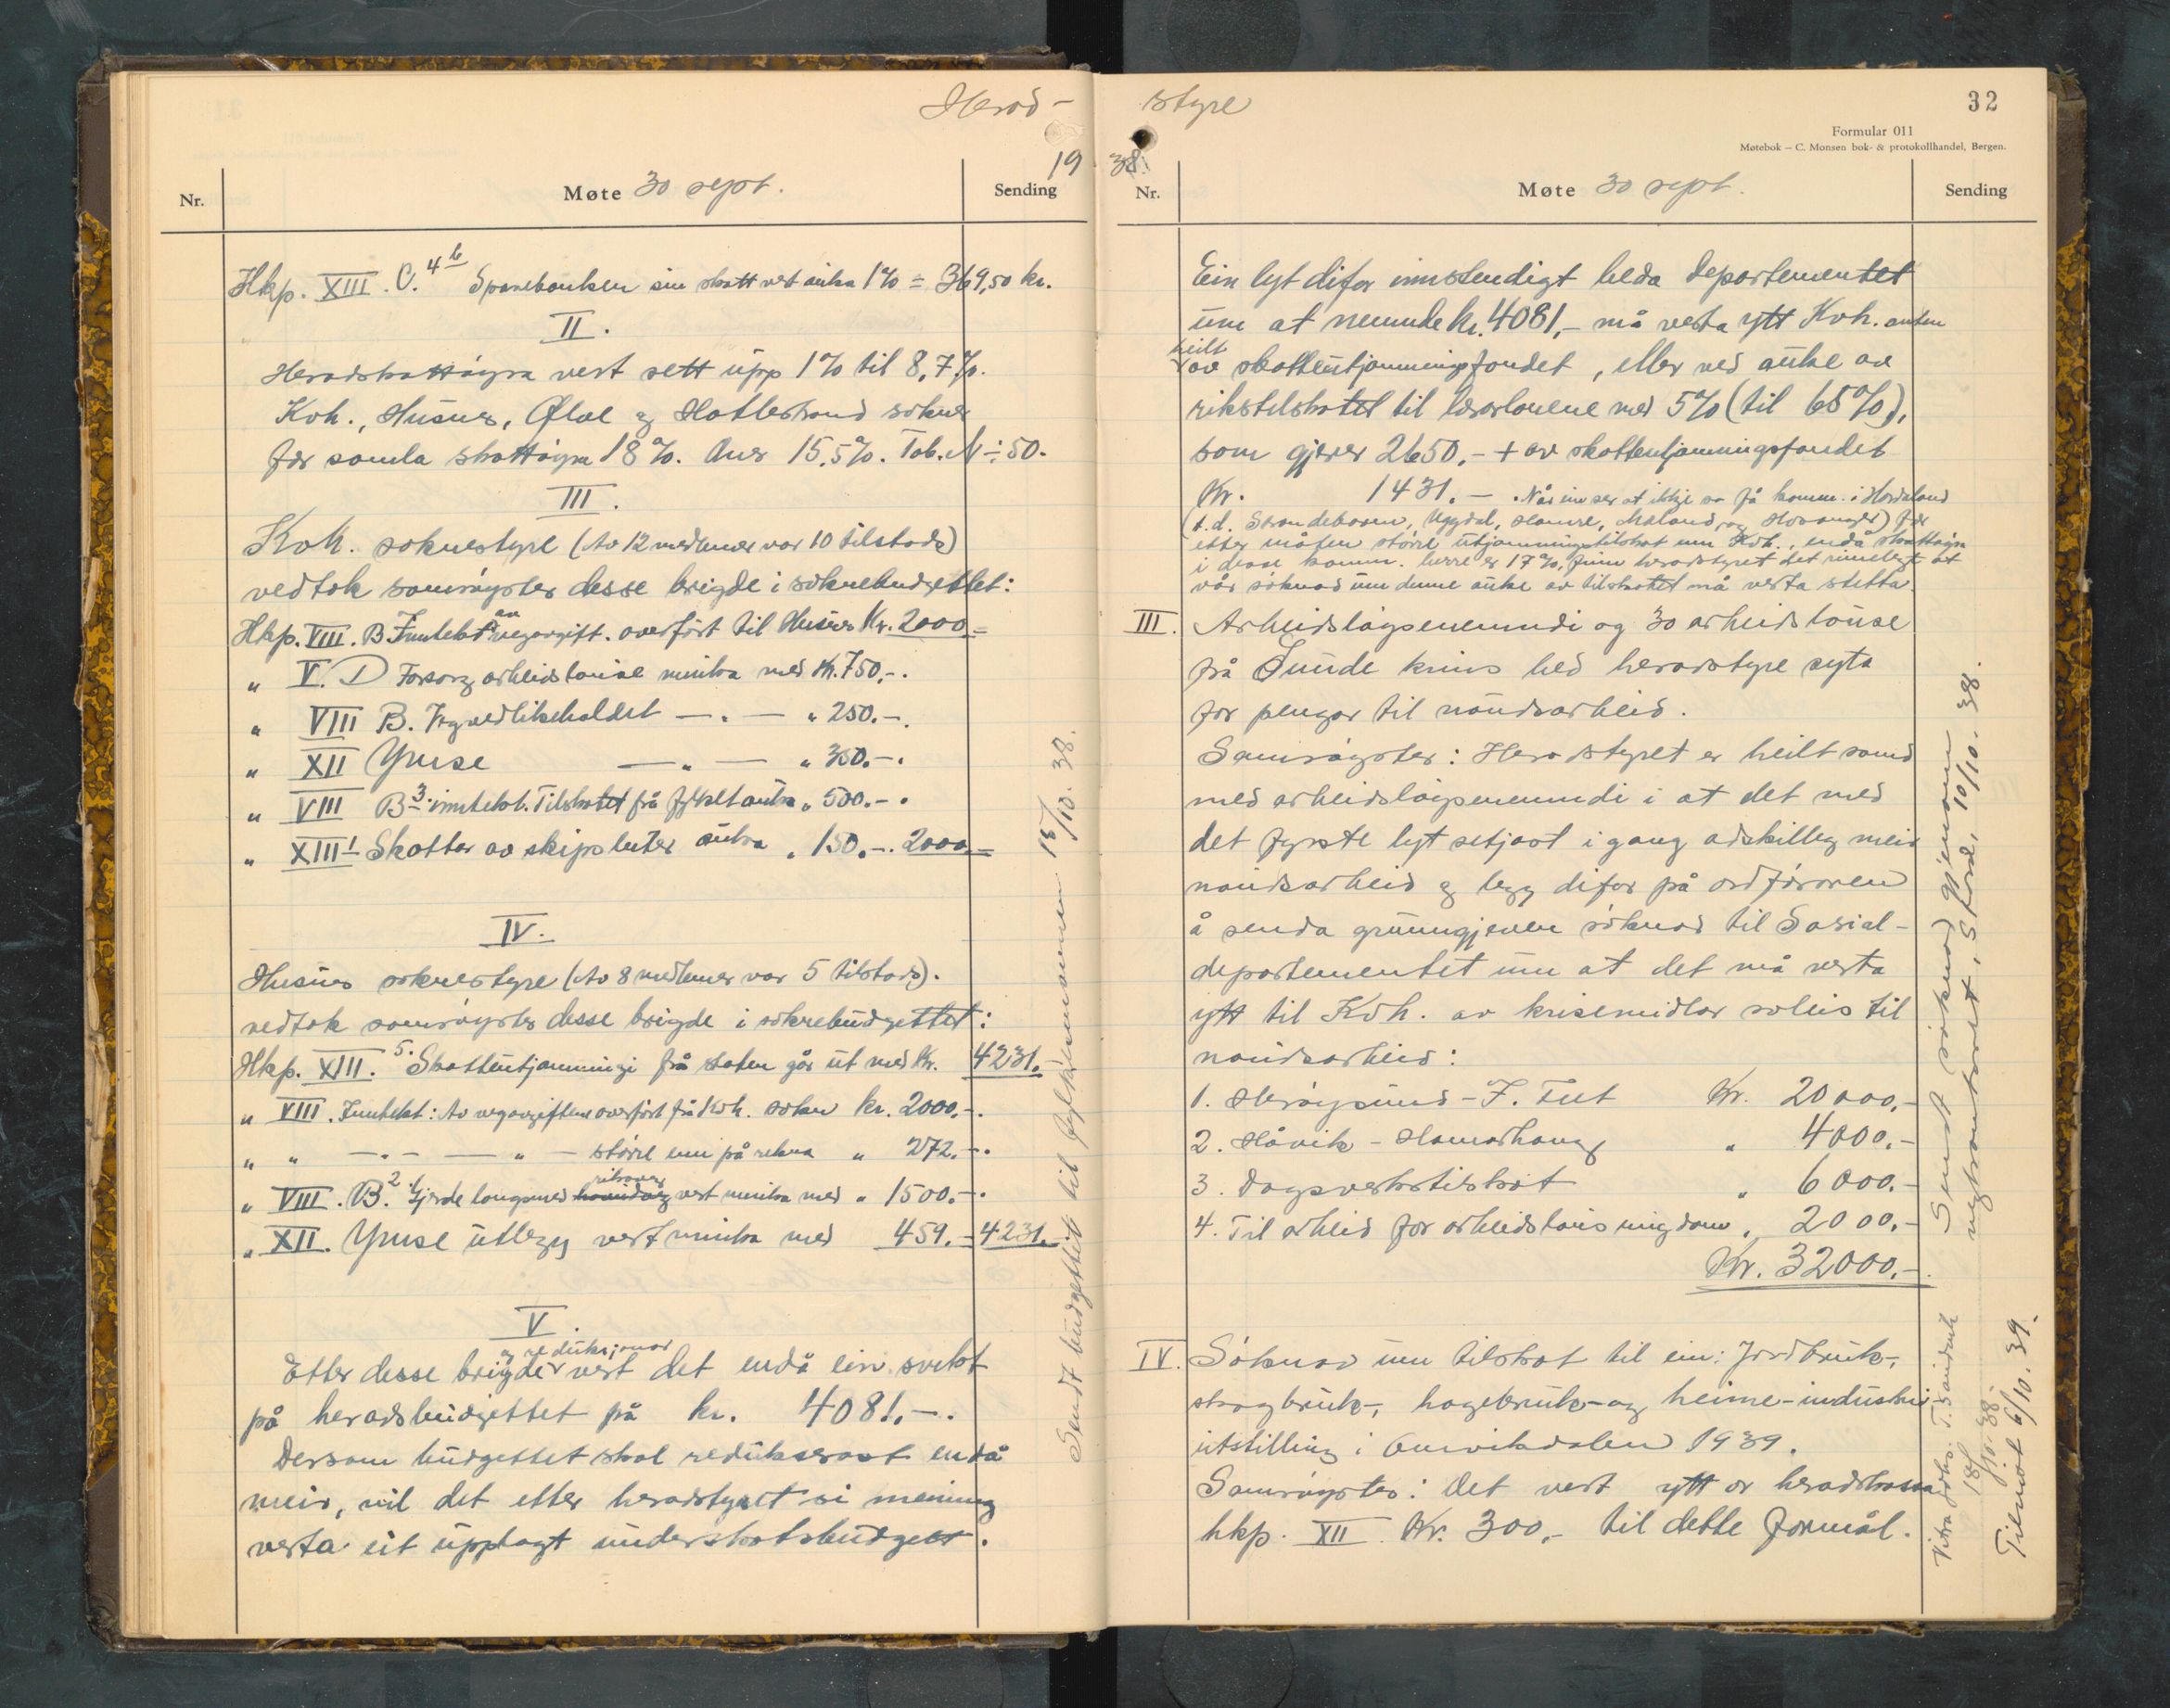 Herad-
19
Nr.
Møte 30 sept.
Sending
Hkp. XIII. C. 4b Sparebanken sin skatt vert auka 1% = 369,50 kr.
II.
Heradskattøyra vert sett upp 1% til 8,7%.
Kvh., Husnes, Ølve og Hatlestrand sokner
før samla skattøyra 18%. Anes 15,5%. Tab. N ÷ 50.
III.
Kvh. soknestyre (Av 12 medlemer var 10 tilstads)
vedtok samrøystes desse brigde i soknebudgettet:
Hkp. VIII. B Inntekt av vegavgift. overført til Husnes Kr. 2000.=
" V. D Forsorg arbeidslause minka med Kr. 750,-.
" VIII B. Vegvedlikehaldet -"- " 250.-.
" XII Ymse -"- " 350.-.
" VIII B3. inntekt. Tilskotet frå fylket auka " 500.-.
" XIII1 Skatter av skipsluter auka " 150.-. 2000.=
IV.
Husnes soknestyre (Av 8 medlemer var 5 tilstads).
vedtok samrøystes desse brigde i soknebudgettet:
Hkp. XIII. 5. Skatteutjamningi frå staten går ut med Kr. 4231.
" VIII. Inntekt: Av vegavgiftene overført frå Kvh. sokn kr. 2000.-.
" " -"- -"- større enn på rekna " 272.-.
riksveg
" VIII. B. 2. Gjerde langsmed hovudveg vert minka med " 1500.-.
" XII. Ymse utlegg vert minka med 459.- 4231.-
V.
og reduksjonar
Etter desse brigde vert det endå ein svikt
på heradsbudgettet på kr. 4081.-.
Dersom budgettet skal redukserast endå
meir, vil det etter heradstyret si meining
verta eit upplagt underskotsbudgett.
Sendt budgettet til fylkesmannen 15/10. 38.
styre
32
Formular 011
Møtebok – C. Monsen bok- & protokollhandel, Bergen.
38.
Nr.
Møte 30 sept.
Sending
Ein lyt difor innstendigt beda departementet
um at nemnde kr. 4081,- må verta ytt Kvh. anten
heilt
av skatteutjamningsfondet, eller ved auke av
rikstilskotet til lærarlønene med 5% (til 65%),
som gjerer 2650.- + av skatteutjamningsfondet
Kr. 1431.-. Når inn ser at ikkje so få komm. i Hordaland
(t.d. Strandebarm, Uggdal, Hamre, Mæland og Hosanger) fær
etter måten større utjamningstilskot enn Kvh., endå skattøyra
i desse komm. berre er 17%, finn heradstyret det rimelegt at
vår søknad um denne auke av tilskotet må verta stetta.
III. Arbeidsløysenemndi og 30 arbeidslause
frå Sunde krins bed heradstyre syta
for pengar til naudsarbeid.
Samrøystes: Heradstyret er heilt samd
med arbeidsløysenemndi i at det med
det fyrste lyt setjast i gang adskilleg meir
naudsarbeid og legg difor på ordføraren
å senda grunngjeven søknad til Sosial-
departementet um at det må verta
ytt til Kvh. av krisemidlar soleis til
naudsarbeid:
1. Herøysund - I. Tut Kr. 20000,-
2. Håvik - Hamarhaug " 4000.-
3. Dagsverkstilskot " 6000.-
4. Til arbeid for arbeidslaus ungdom " 2000.-
Kr. 32000.-
IV. Søknad um tilskot til ein: Jordbruk-,
skogbruk-, hagebruk- og heime-industri-
utstilling i Omvikdalen 1939.
Samrøystes: Det vert ytt or heradskassa
hkp. XII. Kr. 300,- til dette formål.
Sendt søknad gjennom
vegkontoret, Stord, 10/10. 38.
18/10. 38.
Tilvist 6/10. 39.